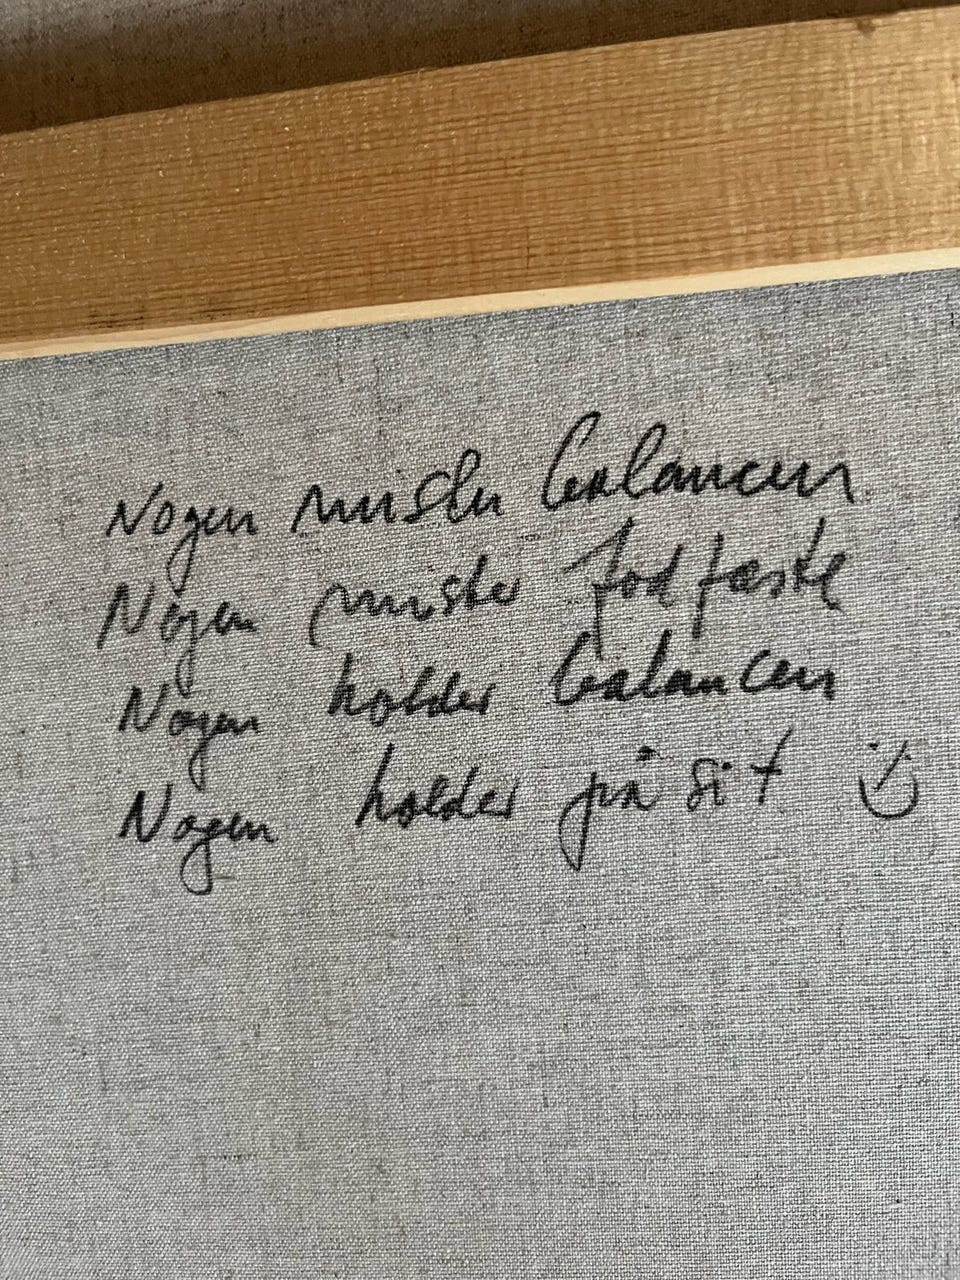 Nogen mister balancen
Nogen mister fodfæste
Nogen holder balancen
Nogen holder på sit